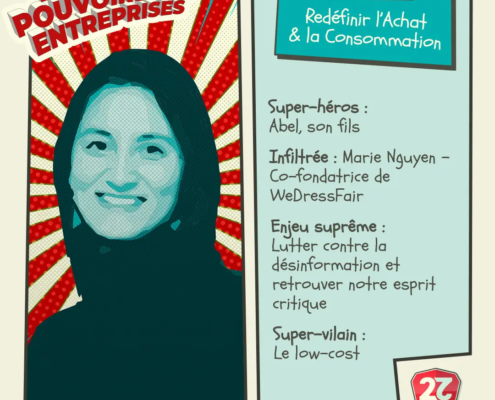 POUVOIR
ENTREPRISES
Redéfinir l'Achat
& la Consommation
Super-héros :
Abel, son fils
Infiltrée : Marie Nguyen –
Co-fondatrice de
WeDressFair
Enjeu suprême :
Lutter contre la
désinformation et
retrouver notre esprit
critique
Super-vilain :
Le low-cost